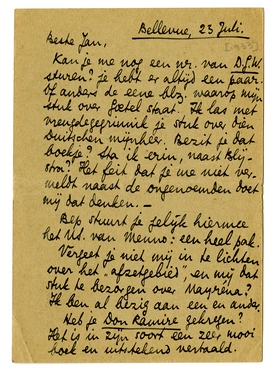 Bellevue, 23 Juli
[1933]
Beste Jan,
Kan je me nog een nr. van D.G.W.
sturen? je hebt er altijd een paar.
Of anders de eene blz. waarop mijn
stuk over staat. Ik las met
vreugdegegrinnik je stuk over dien
Duitschen mijnheer. Bezit je dat
boekje? Sta ik erin, naast Bly-
stra? Het feit dat je me niet ver-
meldt naast de ongenoemden doet
mij dat denken. —
Bep stuurt je gelijk hiermee
het Ms. van Menno: een heel pak.
Vergeet je niet mij in te lichten
over het "afzetgebied", en mij dat
stuk te bezorgen over Mayrena?
Ik ben al bezig aan een en ander.
Heb je Don Ramire gekregen?
Het is in zijn soort een zeer mooi
boek en uitstekend vertaald.